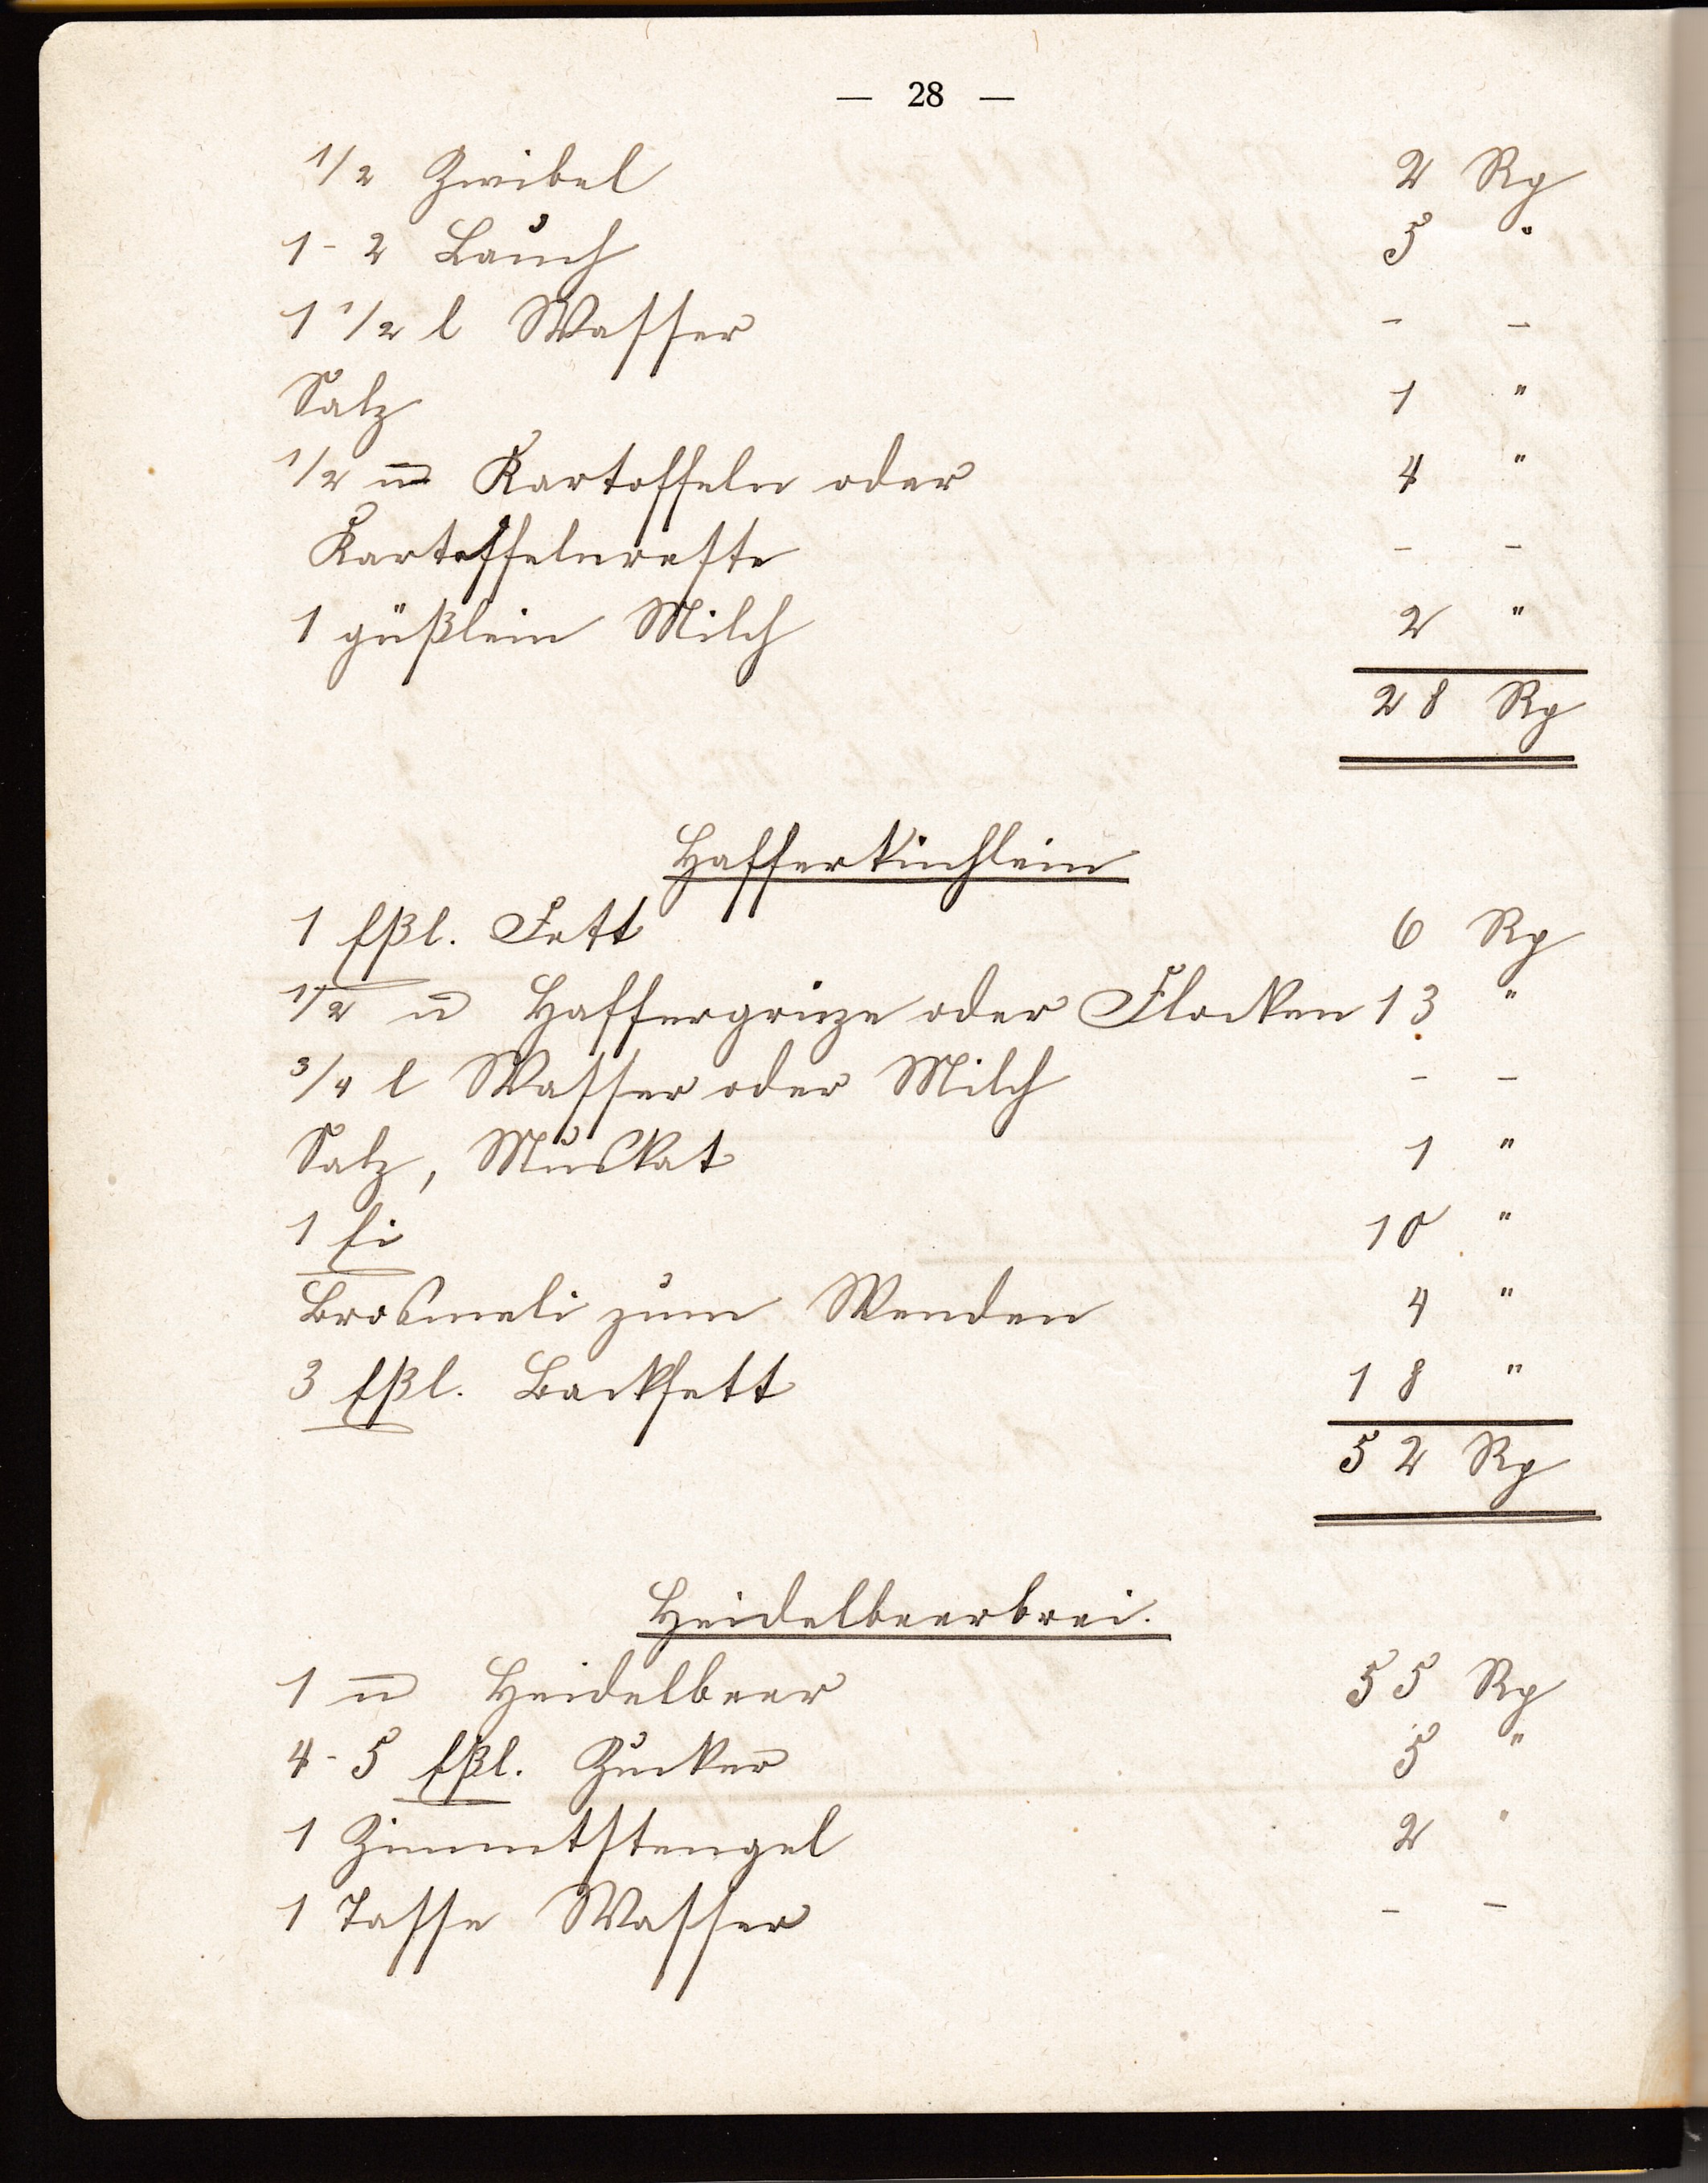 — 28 —
1/2 Zwibel 2 Rp
1-2 Lauch 5 "
1 1/2 l Wasser - -
Salz 1 "
1/2 ℔ Kartoffeln oder 4 "
Kartoffelnreste - -
1 güßlein Milch 2 "
28 Rp
Hafferküchlein
1 Eßl. Fett 6 Rp
1/2 ℔ Haffergrüze oder Flocken 13 "
3/4 l Wasser oder Milch - -
Salz, Muskat 1 "
1 Ei 10 "
Brosmeli zum Wenden 4 "
3 Eßl. Backfett 18 "
52 Rp
Heidelbeerbrei.
1 ℔ Heidelbeer 55 Rp
4-5 Eßl. Zucker 5 "
1 Zimmtstengel 2 "
1 Tasse Wasser - -